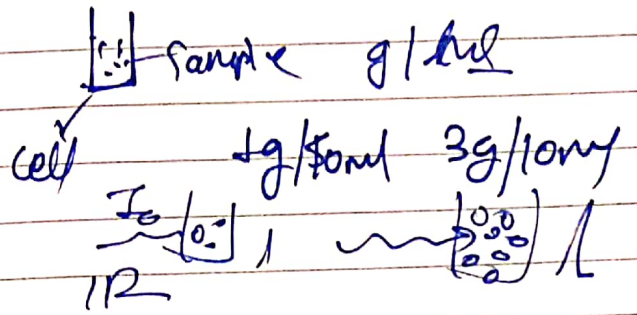 Sample g/ml
cell 1g/10ml 3g/10ml
I₀
IR